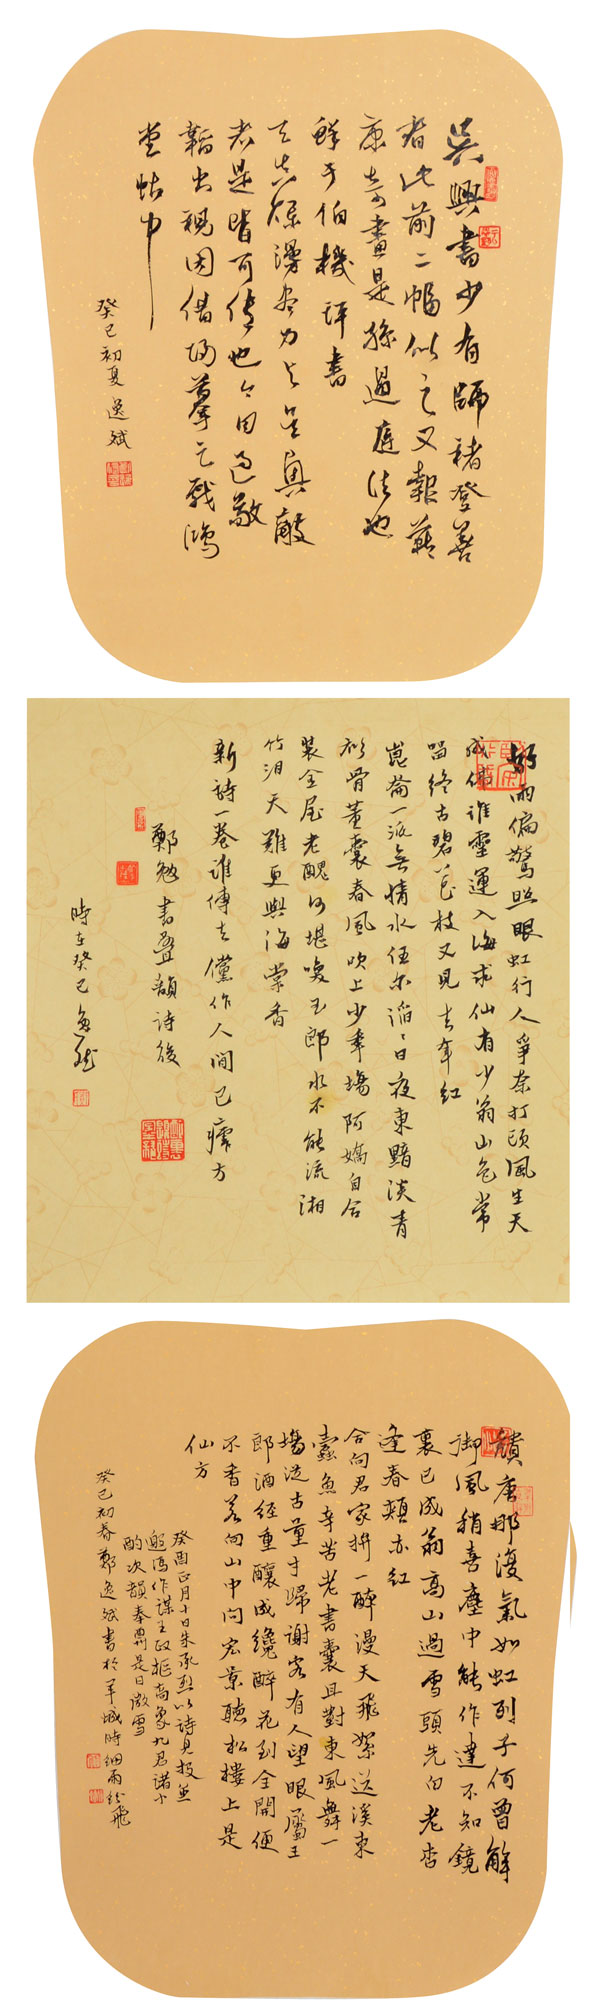 吳興書少有師褚登善
者此前二幅似之又報
康奇畫是孫過庭法也
鮮于伯機評書
者是皆可傳也今日
觀因借歸摹之戲鴻
堂帖中
癸巳初夏逸斌
好雨偏驚照眼虹行人爭奈打頭風生天
成佛誰靈運入海求仙有少翁山色常
留終古碧花枝又見去年紅
崑崙一派無情水任尔滔滔日夜東黯淡青
衫骨董囊春風吹上少年場阿嬌自合
裝金屋老醜何堪喚玉郎水不能流湘
竹淚天難更與海棠香
新詩一卷誰傳去儻作人間已瘧方
鄭勉書疊韻詩後
時在癸巳逸斌
饋唐那復氣如虹列子何曾解
御風稍喜塵中能作達不知鏡
裏已成翁高山過雪頭先白老杏
逢春頰亦紅
合向君家拚一醉漫天飛絮送溪東
蠹魚辛苦老書囊且對東風舞一
場從古量才歸謝客有人望眼屬王
郎酒經重釀成纔醉花到全開便
不香若向山中問宏景聽松樓上是
仙方
癸酉正月十日朱承烈以詩見投並
邀馮作謀王政樞高象九君諾小
酌次韻奉酬是日微雪
癸巳初春鄭逸斌書於羊城時細雨紛飛